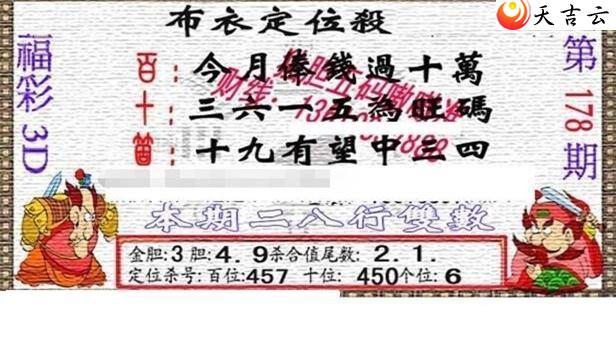 天吉云
布衣定位殺
福彩3D
第178期
百: 今月俸錢過十萬
十: 三六一五為旺碼
個: 十九有望中三四
本期二八行雙數
金胆:3胆:4.9杀合值尾数:2.1.
定位杀号:百位:457 十位:450个位:6